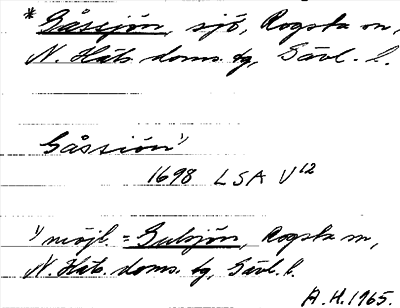 * Gåssjön, sjö, Rogsta sn,
N. Häls. doms. tg, Gävl. l.
Gåssiön 1)
1698 LSA V 12
1) möjl. = Gulsjön, Rogsta sn,
N. Häls. doms. tg, Gävl. l.
A.H. 1965.